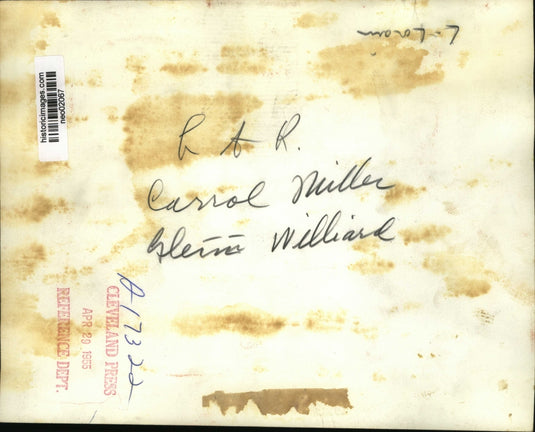 L-Lorain
historicimages.com
neo02067
L to R.
Carrol Miller
Glenn Williard
A17322
CLEVELAND PRESS
APR 29 1955
REFERENCE DEPT.